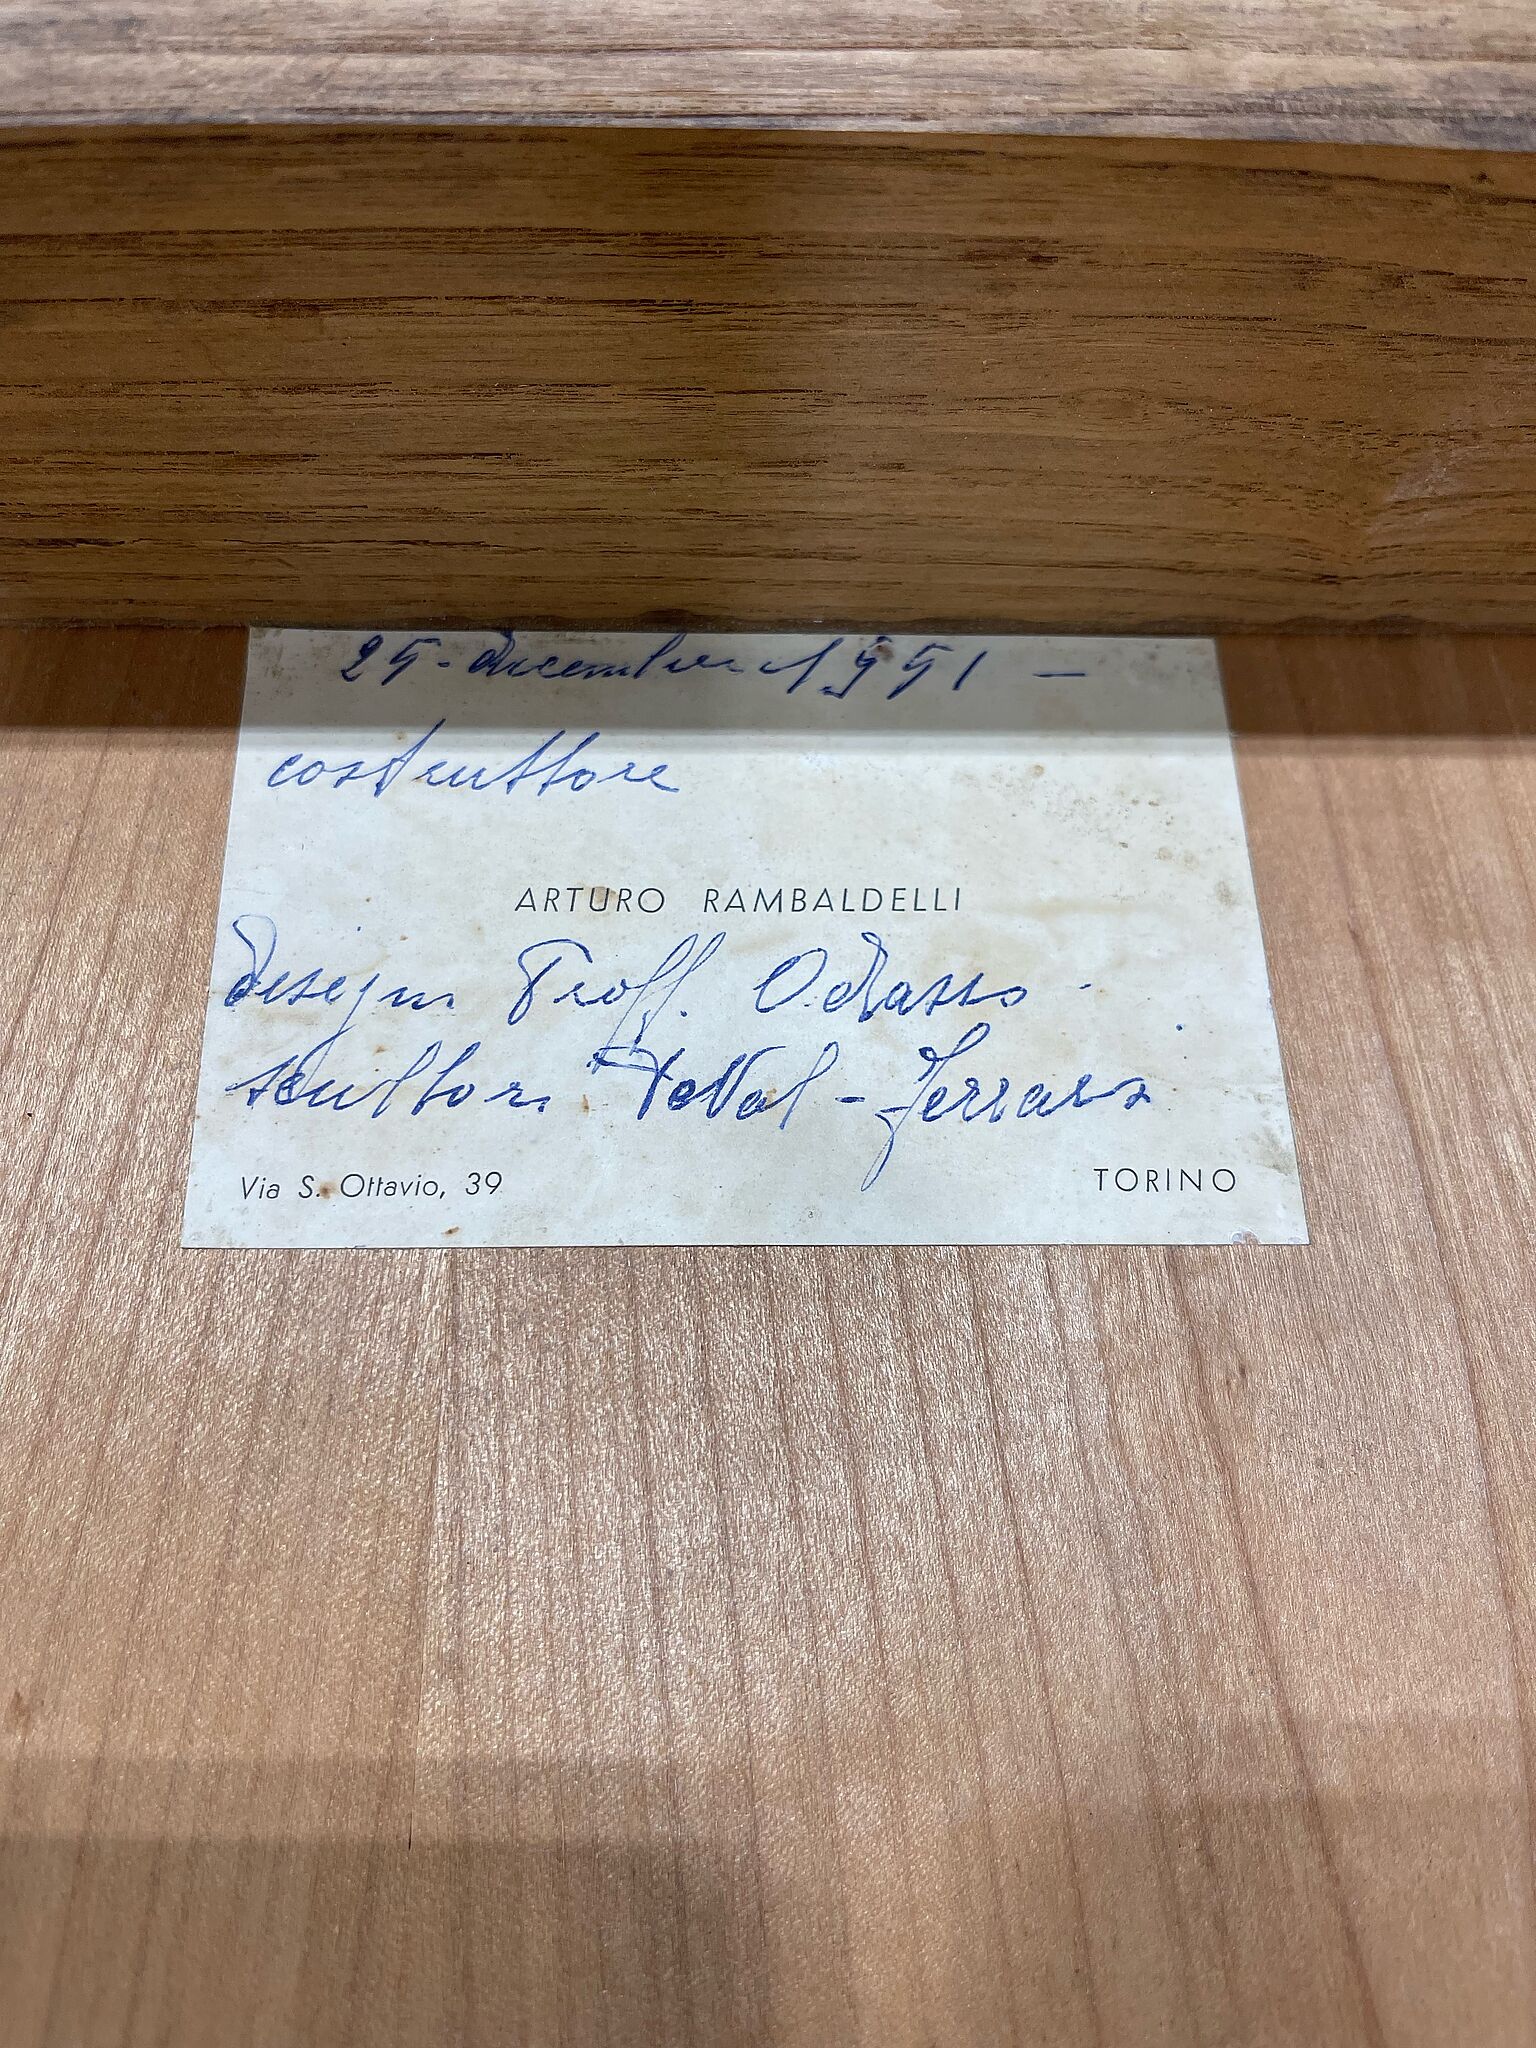 25 - dicembre 1951 —
costruttore
ARTURO RAMBALDELLI
disegni Proff. Odasso
scultori - Ferrara
Via S. Ottavio, 39
TORINO